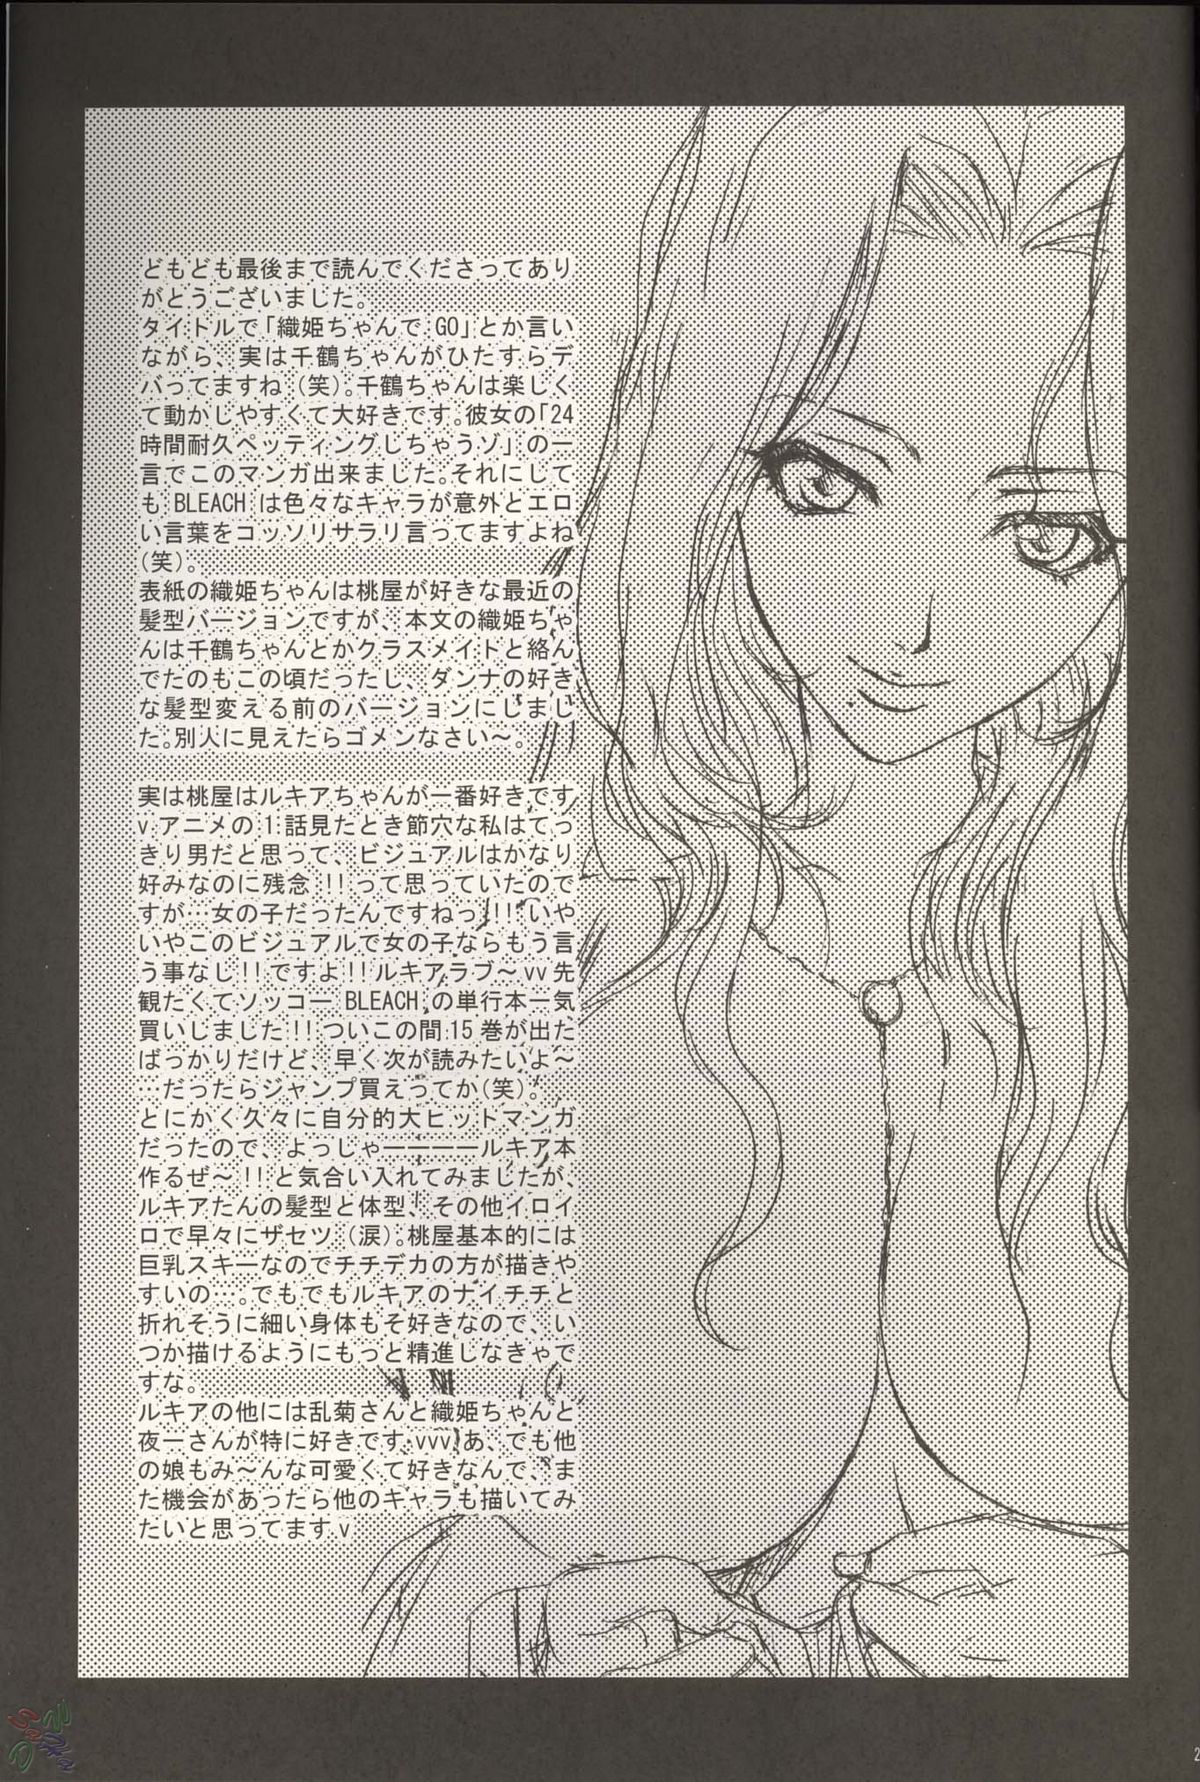 どもども最後まで読んでくださってあり
がとうございました。
タイトルで「織姫ちゃんで GO」とか言い
ながら、実は千鶴ちゃんがひたすらデ
バってますね(笑)。千鶴ちゃんは楽しく
て動かしやすくて大好きです。彼女の「24
時間耐久ペッティングしちゃうゾ」の一
言でこのマンガ出来ました。それにして
も BLEACH は色々なキャラが意外とエロ
い言葉をコッソリサラリ言ってますよね
(笑)。
表紙の織姫ちゃんは桃屋が好きな最近の
髪型バージョンですが、本文の織姫ちゃ
んは千鶴ちゃんとかクラスメイトと絡ん
でたのもこの頃だったし、ダンナの好き
な髪型変える前のバージョンにしまし
た。別人に見えたらゴメンなさい〜。
実は桃屋はルキアちゃんが一番好きです
v アニメの 1 話見たとき節穴な私はてっ
きり男だと思って、ビジュアルはかなり
好みなのに残念!!って思っていたので
すが…女の子だったんですねっ!!!いや
いやこのビジュアルで女の子ならもう言
う事なし!!ですよ!!ルキアラブ〜vv 先
観たくてソッコー BLEACH の単行本一気
買いしました!!ついこの間 15 巻が出た
ばっかりだけど、早く次が読みたいよ〜
…だったらジャンプ買えってか(笑)。
とにかく久々に自分的大ヒットマンガ
だったので、よっしゃ————ルキア本
作るぜ〜!!と気合い入れてみましたが、
ルキアたんの髪型と体型、その他イロイ
ロで早々にザセツ(涙)。桃屋基本的には
巨乳スキーなのでチチデカの方が描きや
すいの…。でもでもルキアのナイチチと
折れそうに細い身体もそ好きなので、い
つか描けるようにもっと精進しなきゃで
すな。
ルキアの他には乱菊さんと織姫ちゃんと
夜一さんが特に好きです vvv あ、でも他
の娘もみ〜んな可愛くて好きなんで、ま
た機会があったら他のキャラも描いてみ
たいと思ってます v
2